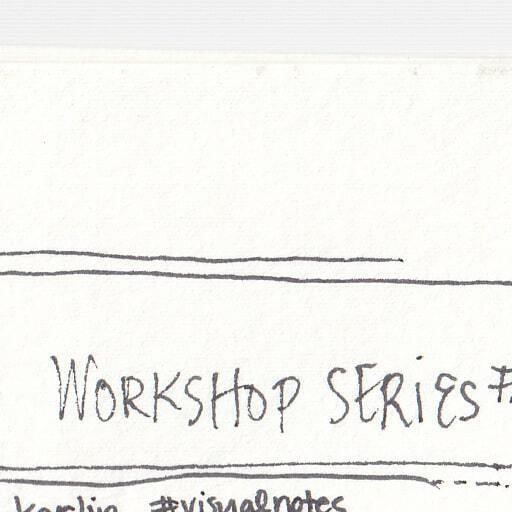 WORKSHOP SERIES
#visualnotes